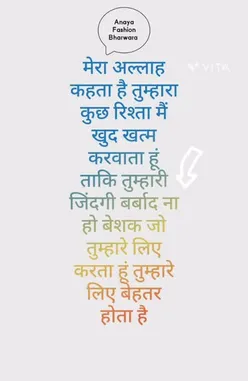 Anaya
Fashion
Bharwara
मेरा अल्लाह
VITA
कहता है तुम्हारा
कुछ रिश्ता मैं
खुद खत्म
करवाता हूं
ताकि तुम्हारी
जिंदगी बर्बाद ना
हो बेशक जो
तुम्हारे लिए
करता हूं तुम्हारे
लिए बेहतर
होता है